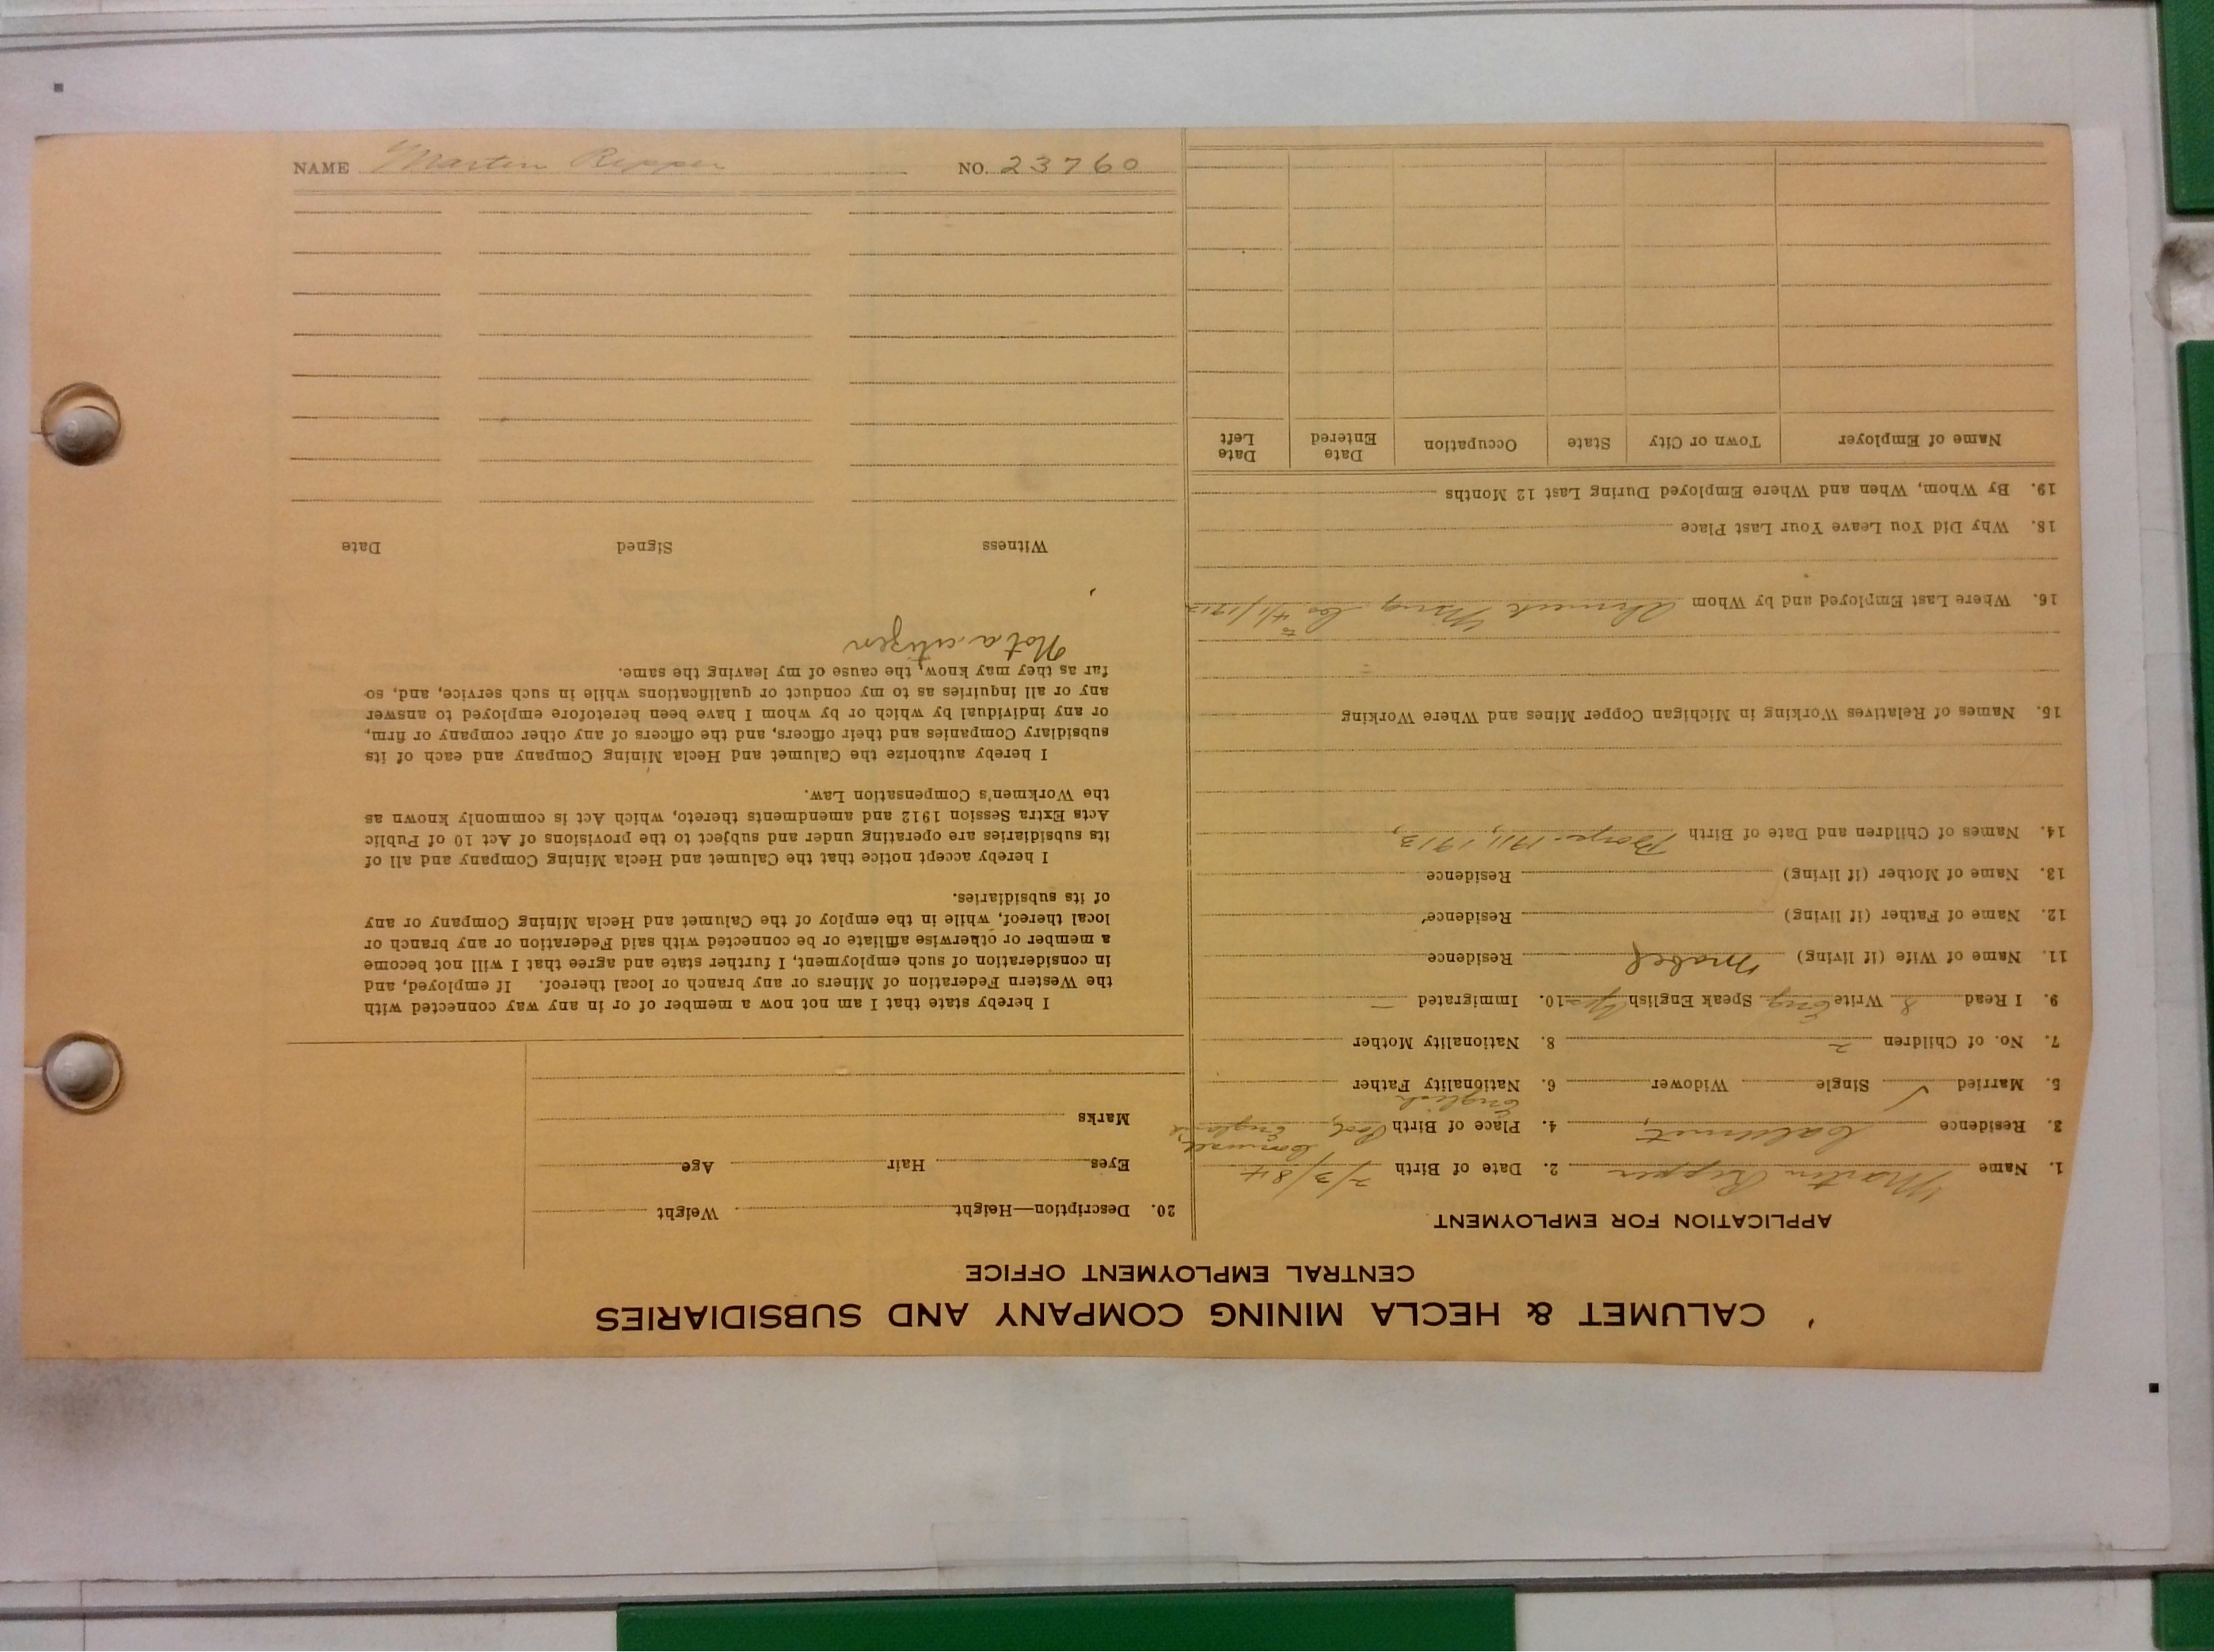 CALUMET & HECLA MINING COMPANY AND SUBSIDIARIES
CENTRAL EMPLOYMENT OFFICE
APPLICATION FOR EMPLOYMENT
1. Name Martin Ripper 2. Date of Birth 2/3/84
3. Residence Calumet, 4. Place of Birth Pool, Cornwall, England
English
5. Married ✓ Single Widower 6. Nationality Father
7. No. of Children 2 8. Nationality Mother
9. I Read & Write Eng Speak English yes 10. Immigrated –
11. Name of Wife (if living) Mabel Residence
12. Name of Father (if living) Residence
13. Name of Mother (if living) Residence
14. Names of Children and Date of Birth 1911, 1913,
15. Names of Relatives Working in Michigan Copper Mines and Where Working
16. Where Last Employed and by Whom Ahmeek Ming Co to 4/1/1912
18. Why Did You Leave Your Last Place
19. By Whom, When and Where Employed During Last 12 Months
Name of Employer Town or City State Occupation Date Entered Date Left
20. Description—Height Weight
Eyes Hair Age
Marks
I hereby state that I am not now a member of or in any way connected with
the Western Federation of Miners or any branch or local thereof. If employed, and
in consideration of such employment, I further state and agree that I will not become
a member or otherwise affiliate or be connected with said Federation or any branch or
local thereof, while in the employ of the Calumet and Hecla Mining Company or any
of its subsidiaries.
I hereby accept notice that the Calumet and Hecla Mining Company and all of
its subsidiaries are operating under and subject to the provisions of Act 10 of Public
Acts Extra Session 1912 and amendments thereto, which Act is commonly known as
the Workmen's Compensation Law.
I hereby authorize the Calumet and Hecla Mining Company and each of its
subsidiary Companies and their officers, and the officers of any other company or firm,
or any individual by which or by whom I have been heretofore employed to answer
any or all inquiries as to my conduct or qualifications while in such service, and, so
far as they may know, the cause of my leaving the same.
Not a citizen
Witness Signed Date
NAME Martin Ripper NO. 23760